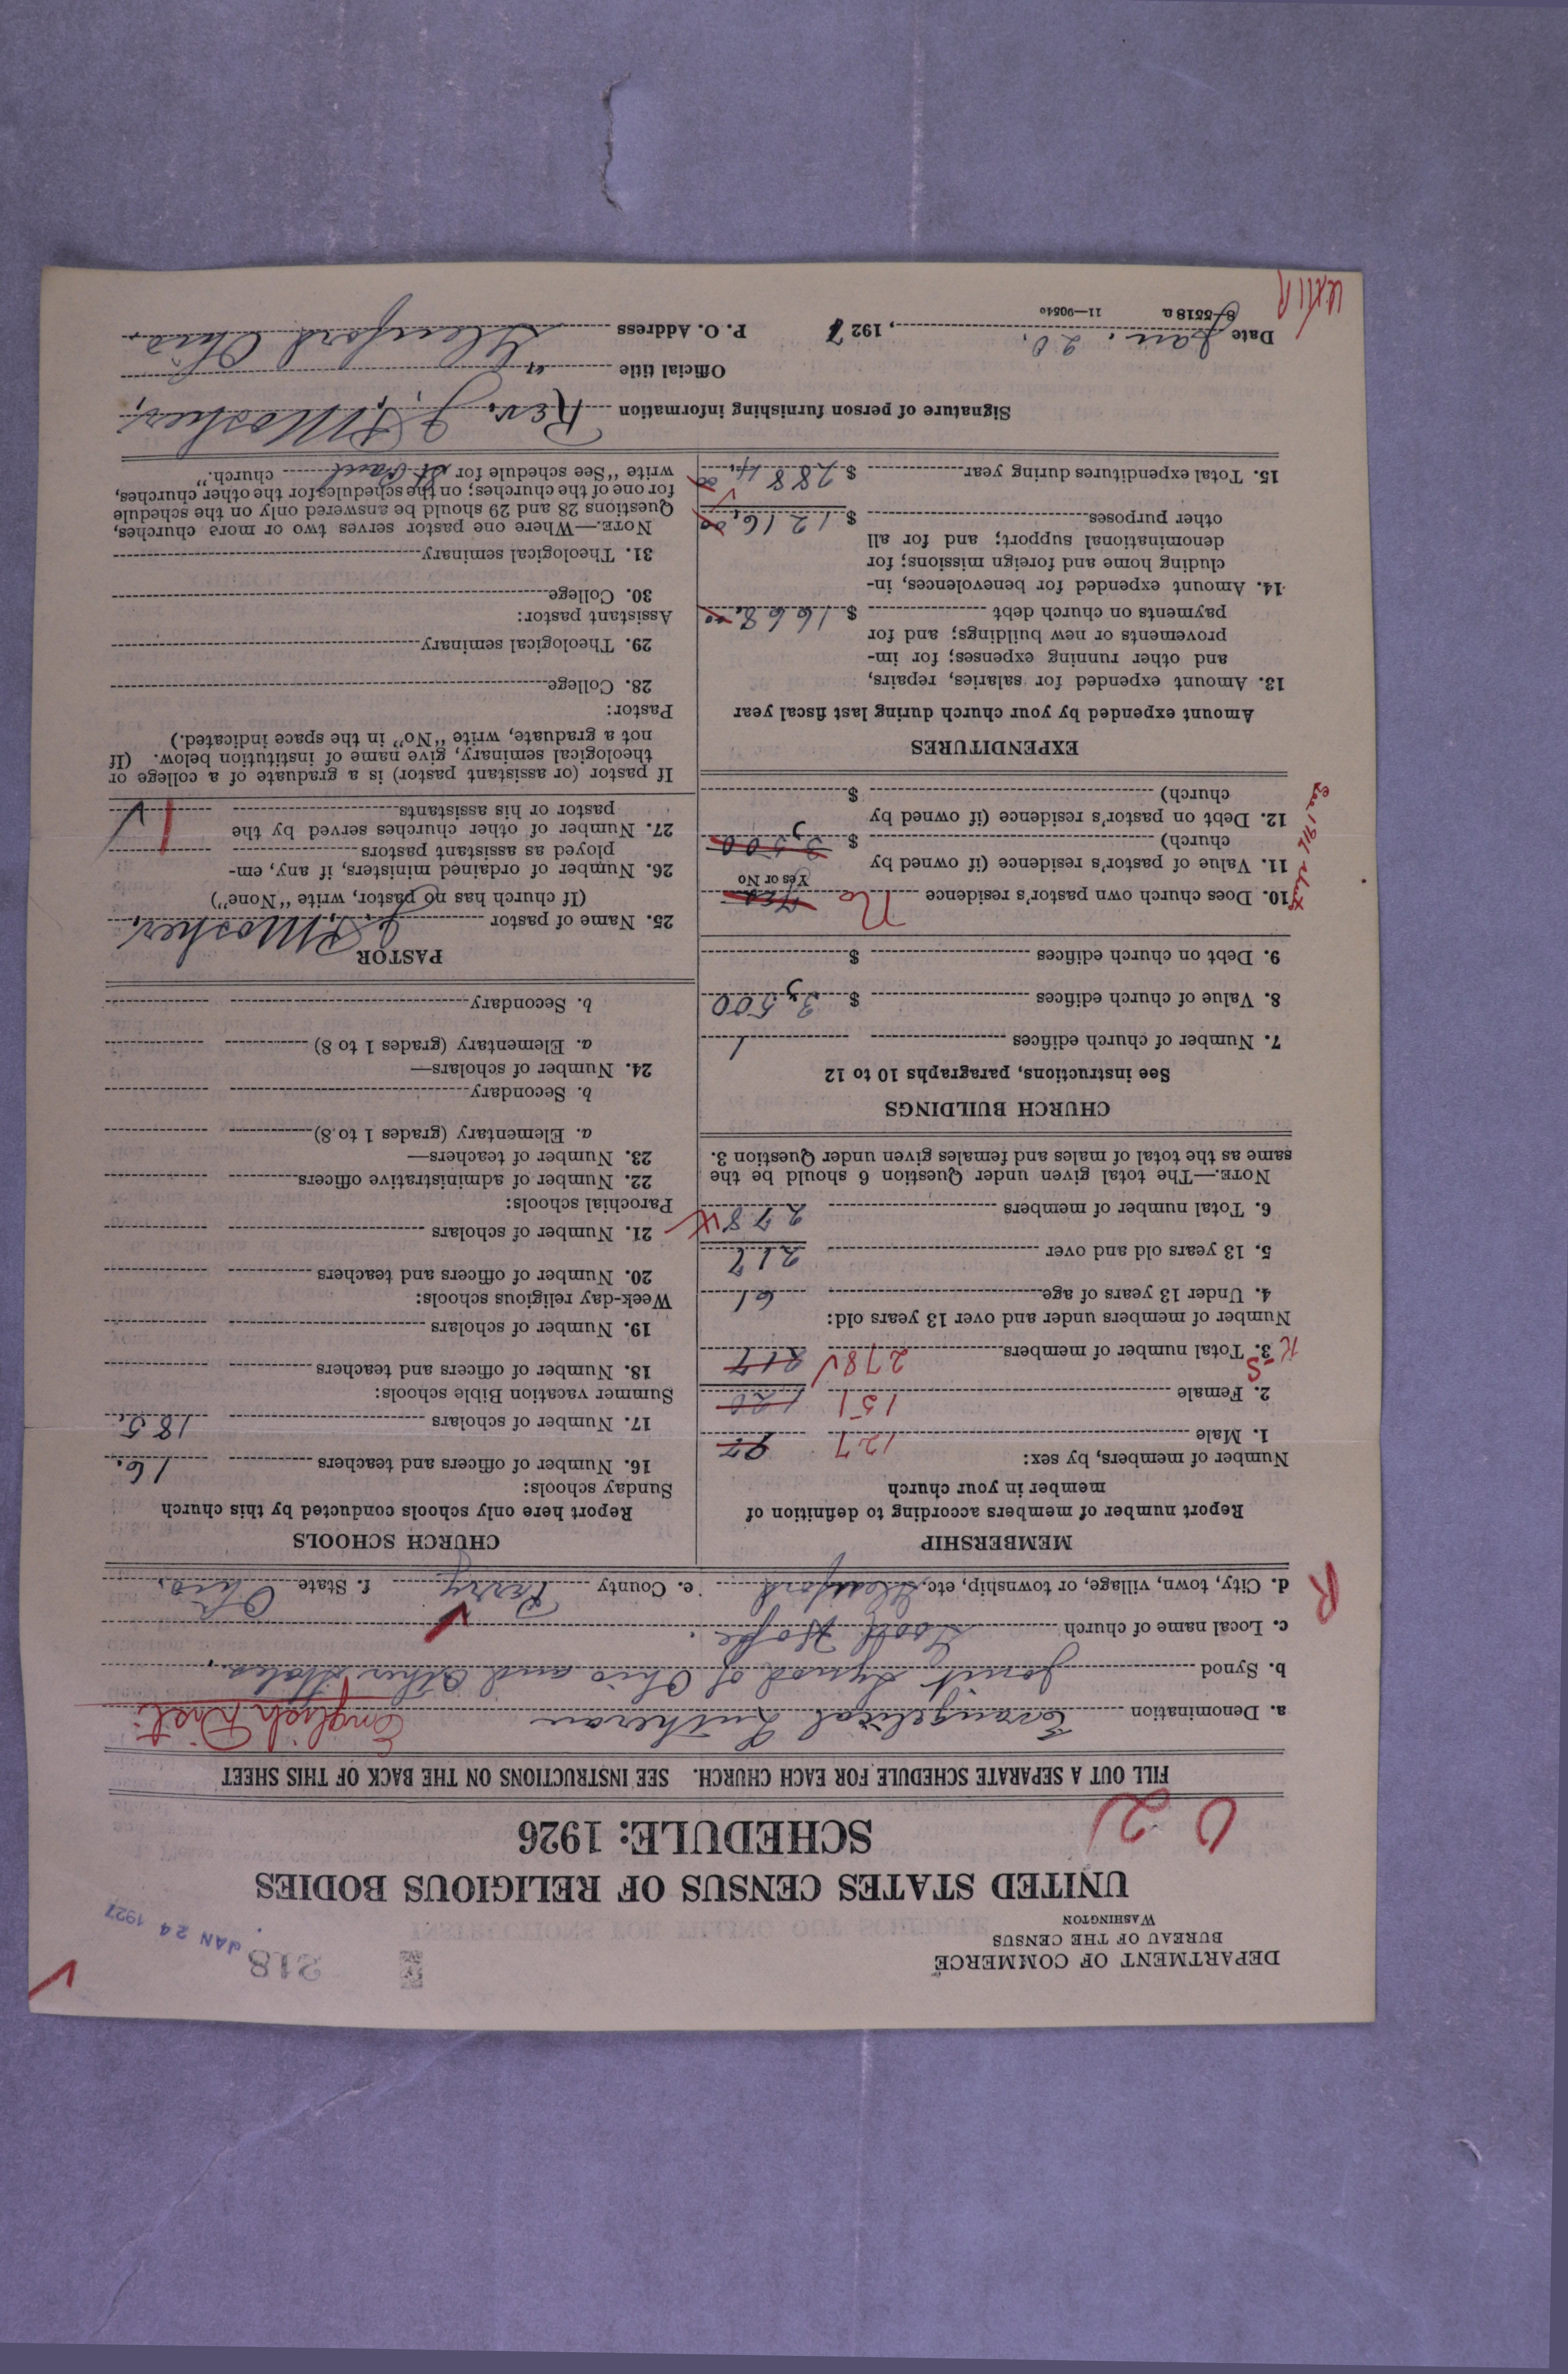 DEPARTMENT OF COMMERCE
BUREAU OF THE CENSUS
WASHINGTON
218
JAN 24 1927
UNITED STATES CENSUS OF RELIGIOUS BODIES
SCHEDULE: 1926
FILL OUT A SEPARATE SCHEDULE FOR EACH CHURCH. SEE INSTRUCTIONS ON THE BACK OF THIS SHEET
a. Denomination Evangelical Lutheran English Dist.
b. Synod Joint Synod of Ohio and Other States.
c. Local name of church Good Hope.
d. City, town, village, or township, etc. Glenford e. County Perry f. State Ohio.
R
MEMBERSHIP
Report number of members according to definition of
member in your church
Number of members, by sex:
1. Male 127 97
2. Female 151 120
3. Total number of members 278 217
Number of members under and over 13 years old:
4. Under 13 years of age 61
5. 13 years old and over 217
6. Total number of members 278
NOTE.—The total given under Question 6 should be the
same as the total of males and females given under Question 3.
CHURCH BUILDINGS
See instructions, paragraphs 10 to 12
7. Number of church edifices 1
8. Value of church edifices $ 3,500
9. Debt on church edifices $
10. Does church own pastor's residence No Yes
Yes or No
11. Value of pastor's residence (if owned by
church) $ 3,500
12. Debt on pastor's residence (if owned by
church) $
EXPENDITURES
Amount expended by your church during last fiscal year
13. Amount expended for salaries, repairs,
and other running expenses; for im-
provements or new buildings; and for
payments on church debt $ 1668.00
14. Amount expended for benevolences, in-
cluding home and foreign missions; for
denominational support; and for all
other purposes $ 1216.00
15. Total expenditures during year $ 2884.00
CHURCH SCHOOLS
Report here only schools conducted by this church
Sunday schools:
16. Number of officers and teachers 16.
17. Number of scholars 185.
Summer vacation Bible schools:
18. Number of officers and teachers
19. Number of scholars
Week-day religious schools:
20. Number of officers and teachers
21. Number of scholars
Parochial schools:
22. Number of administrative officers
23. Number of teachers—
a. Elementary (grades 1 to 8)
b. Secondary
24. Number of scholars—
a. Elementary (grades 1 to 8)
b. Secondary
PASTOR
25. Name of pastor J. P. Mosher.
(If church has no pastor, write "None")
26. Number of ordained ministers, if any, em-
ployed as assistant pastors
27. Number of other churches served by the
pastor or his assistants 1
If pastor (or assistant pastor) is a graduate of a college or
theological seminary, give name of institution below. (If
not a graduate, write "No" in the space indicated.)
Pastor:
28. College
29. Theological seminary
Assistant pastor:
30. College
31. Theological seminary
NOTE.—Where one pastor serves two or more churches,
Questions 28 and 29 should be answered only on the schedule
for one of the churches; on the schedules for the other churches,
write "See schedule for St. Paul church."
Signature of person furnishing information Rev. J. P. Mosher.
Official title "
Date Jan. 20, 1927 P. O. Address Glenford Ohio.
8-5518 a 11—9051